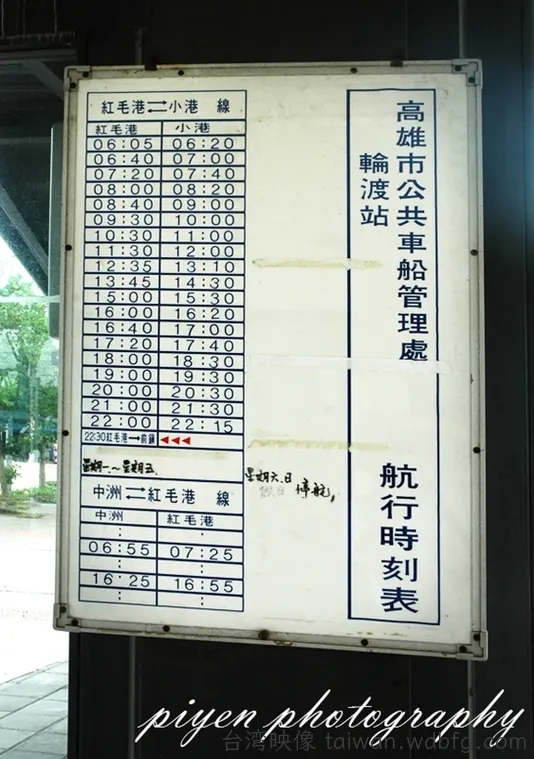 高雄市公共車船管理處
輪渡站
航行時刻表
紅毛港⇄小港 線
紅毛港 小港
06:05 06:20
06:40 07:00
07:20 07:40
08:00 08:20
08:40 09:00
09:30 10:00
10:30 11:00
11:30 12:00
12:35 13:10
13:45 14:30
15:00 15:30
16:00 16:20
16:40 17:00
17:20 17:40
18:00 18:30
19:00 19:30
20:00 20:30
21:00 21:30
22:00 22:15
22:30紅毛港→前鎮 ◀◀◀
星期一~星期五
星期六.日
假日 停航,
中洲⇄紅毛港 線
中洲 紅毛港
: :
06:55 07:25
: :
16:25 16:55
: :
piyen photography
台湾映像 taiwan.wdbfg.com